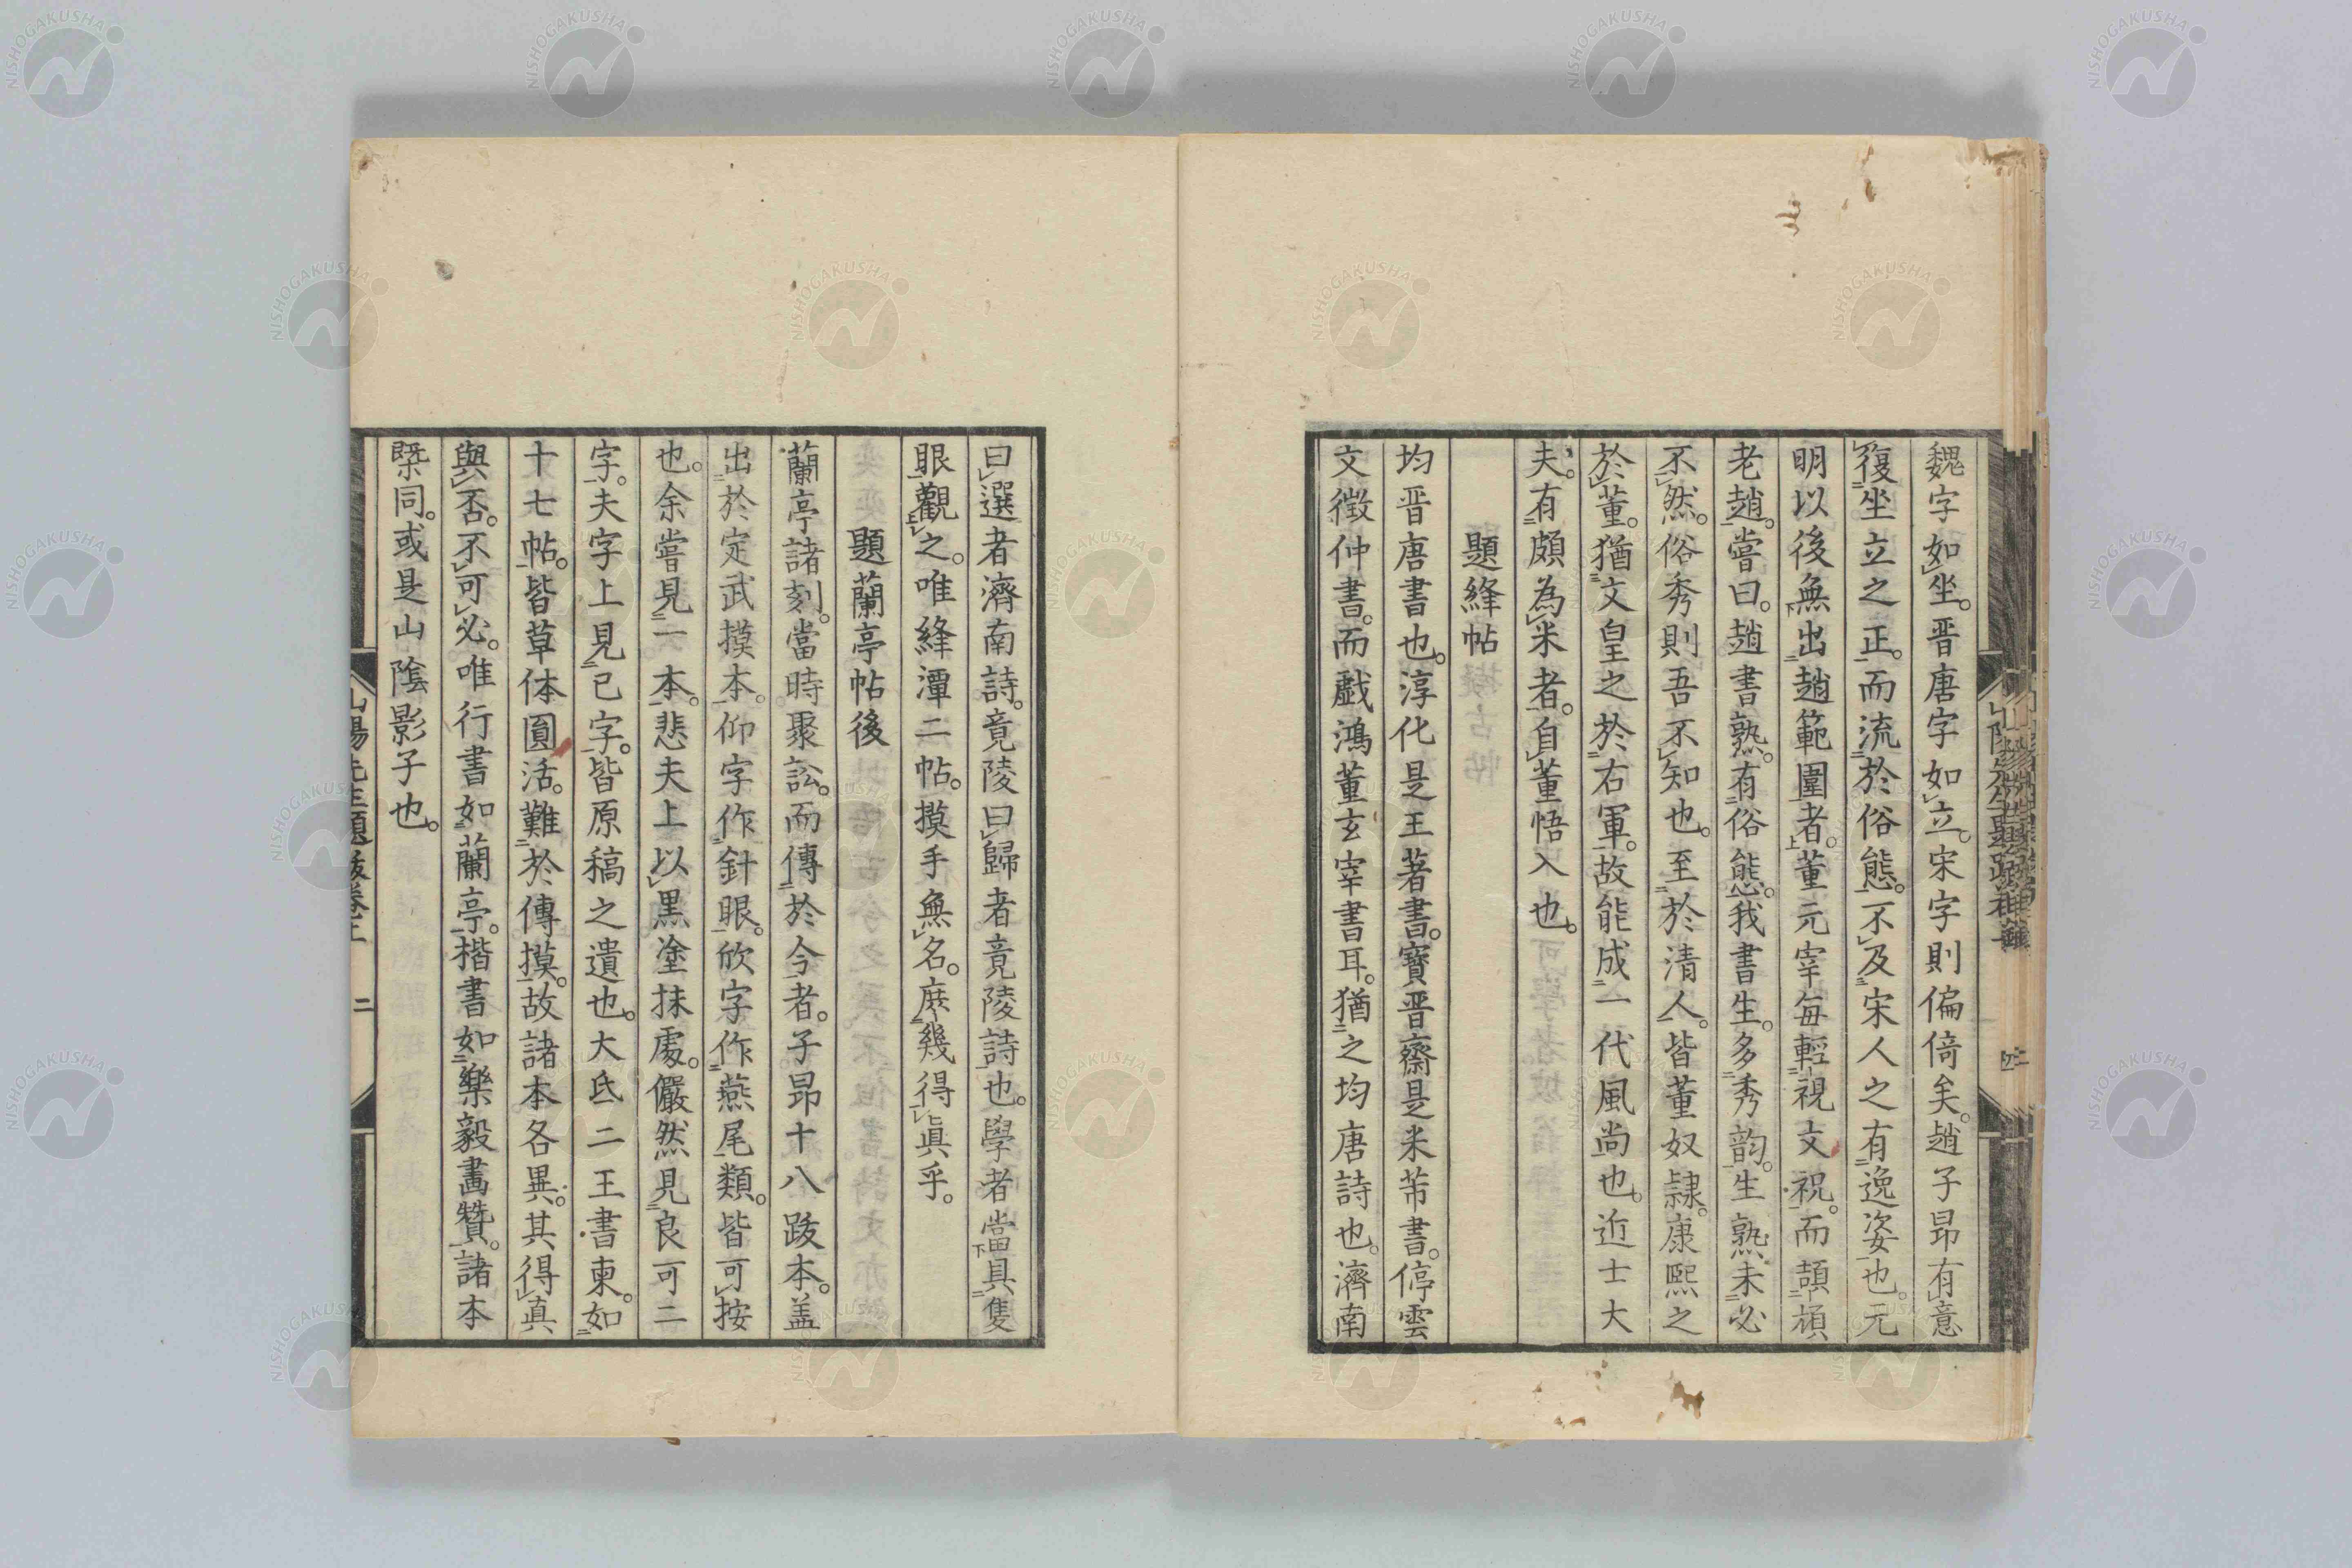 魏字如坐。晋唐字如立。宋字則偏倚矣。趙子昂有意
復坐立之正。而流於俗態。不及宋人之有逸姿也。元
明以後無出趙範圍者。董元宰每輕視文祝。而頡頏
老趙。嘗曰。趙書熟。有俗態。我書生。多秀韵。生熟未必
不然。俗秀則吾不知也。至於清人。皆董奴隷。康熙之
於董。猶文皇之於右軍。故能成一代風尚也。近士大
夫。有頗為米者。自董悟入也。
題絳帖
均晋唐書也。淳化是王著書。寶晋齋是米芾書。停雲
文徴仲書。而戯鴻董玄宰書耳。猶之均唐詩也。濟南
曰選者濟南詩。竟陵曰歸者竟陵詩也。學者當具隻
眼觀之。唯絳潭二帖。摸手無名。庶幾得眞乎。
題蘭亭帖後
蘭亭諸刻。當時聚訟。而傳於今者。子昂十八跋本。盖
出於定武摸本。仰字作針眼。欣字作燕尾類。皆可按
也。余嘗見一本。悲夫上以黒塗抹處。儼然見良可二
字。夫字上見已字。皆原稿之遺也。大氐二王書柬。如
十七帖。皆草体圓活。難於傳摸。故諸本各異。其得真
與否。不可必。唯行書如蘭亭。楷書如樂毅畵贊。諸本
槩同。或是山陰影子也。
山陽先生題跋卷上 二